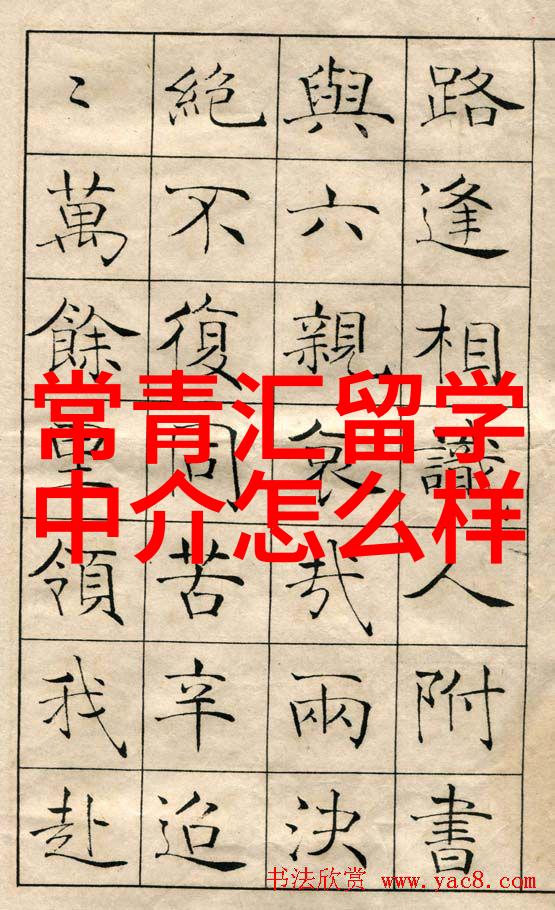 路逢相識人附書
與六親哀哉兩決
絕不復同苦辛迢
〻萬餘里領我赴
常青汇留学
中介怎么样
书法欣赏 www.yac8.com